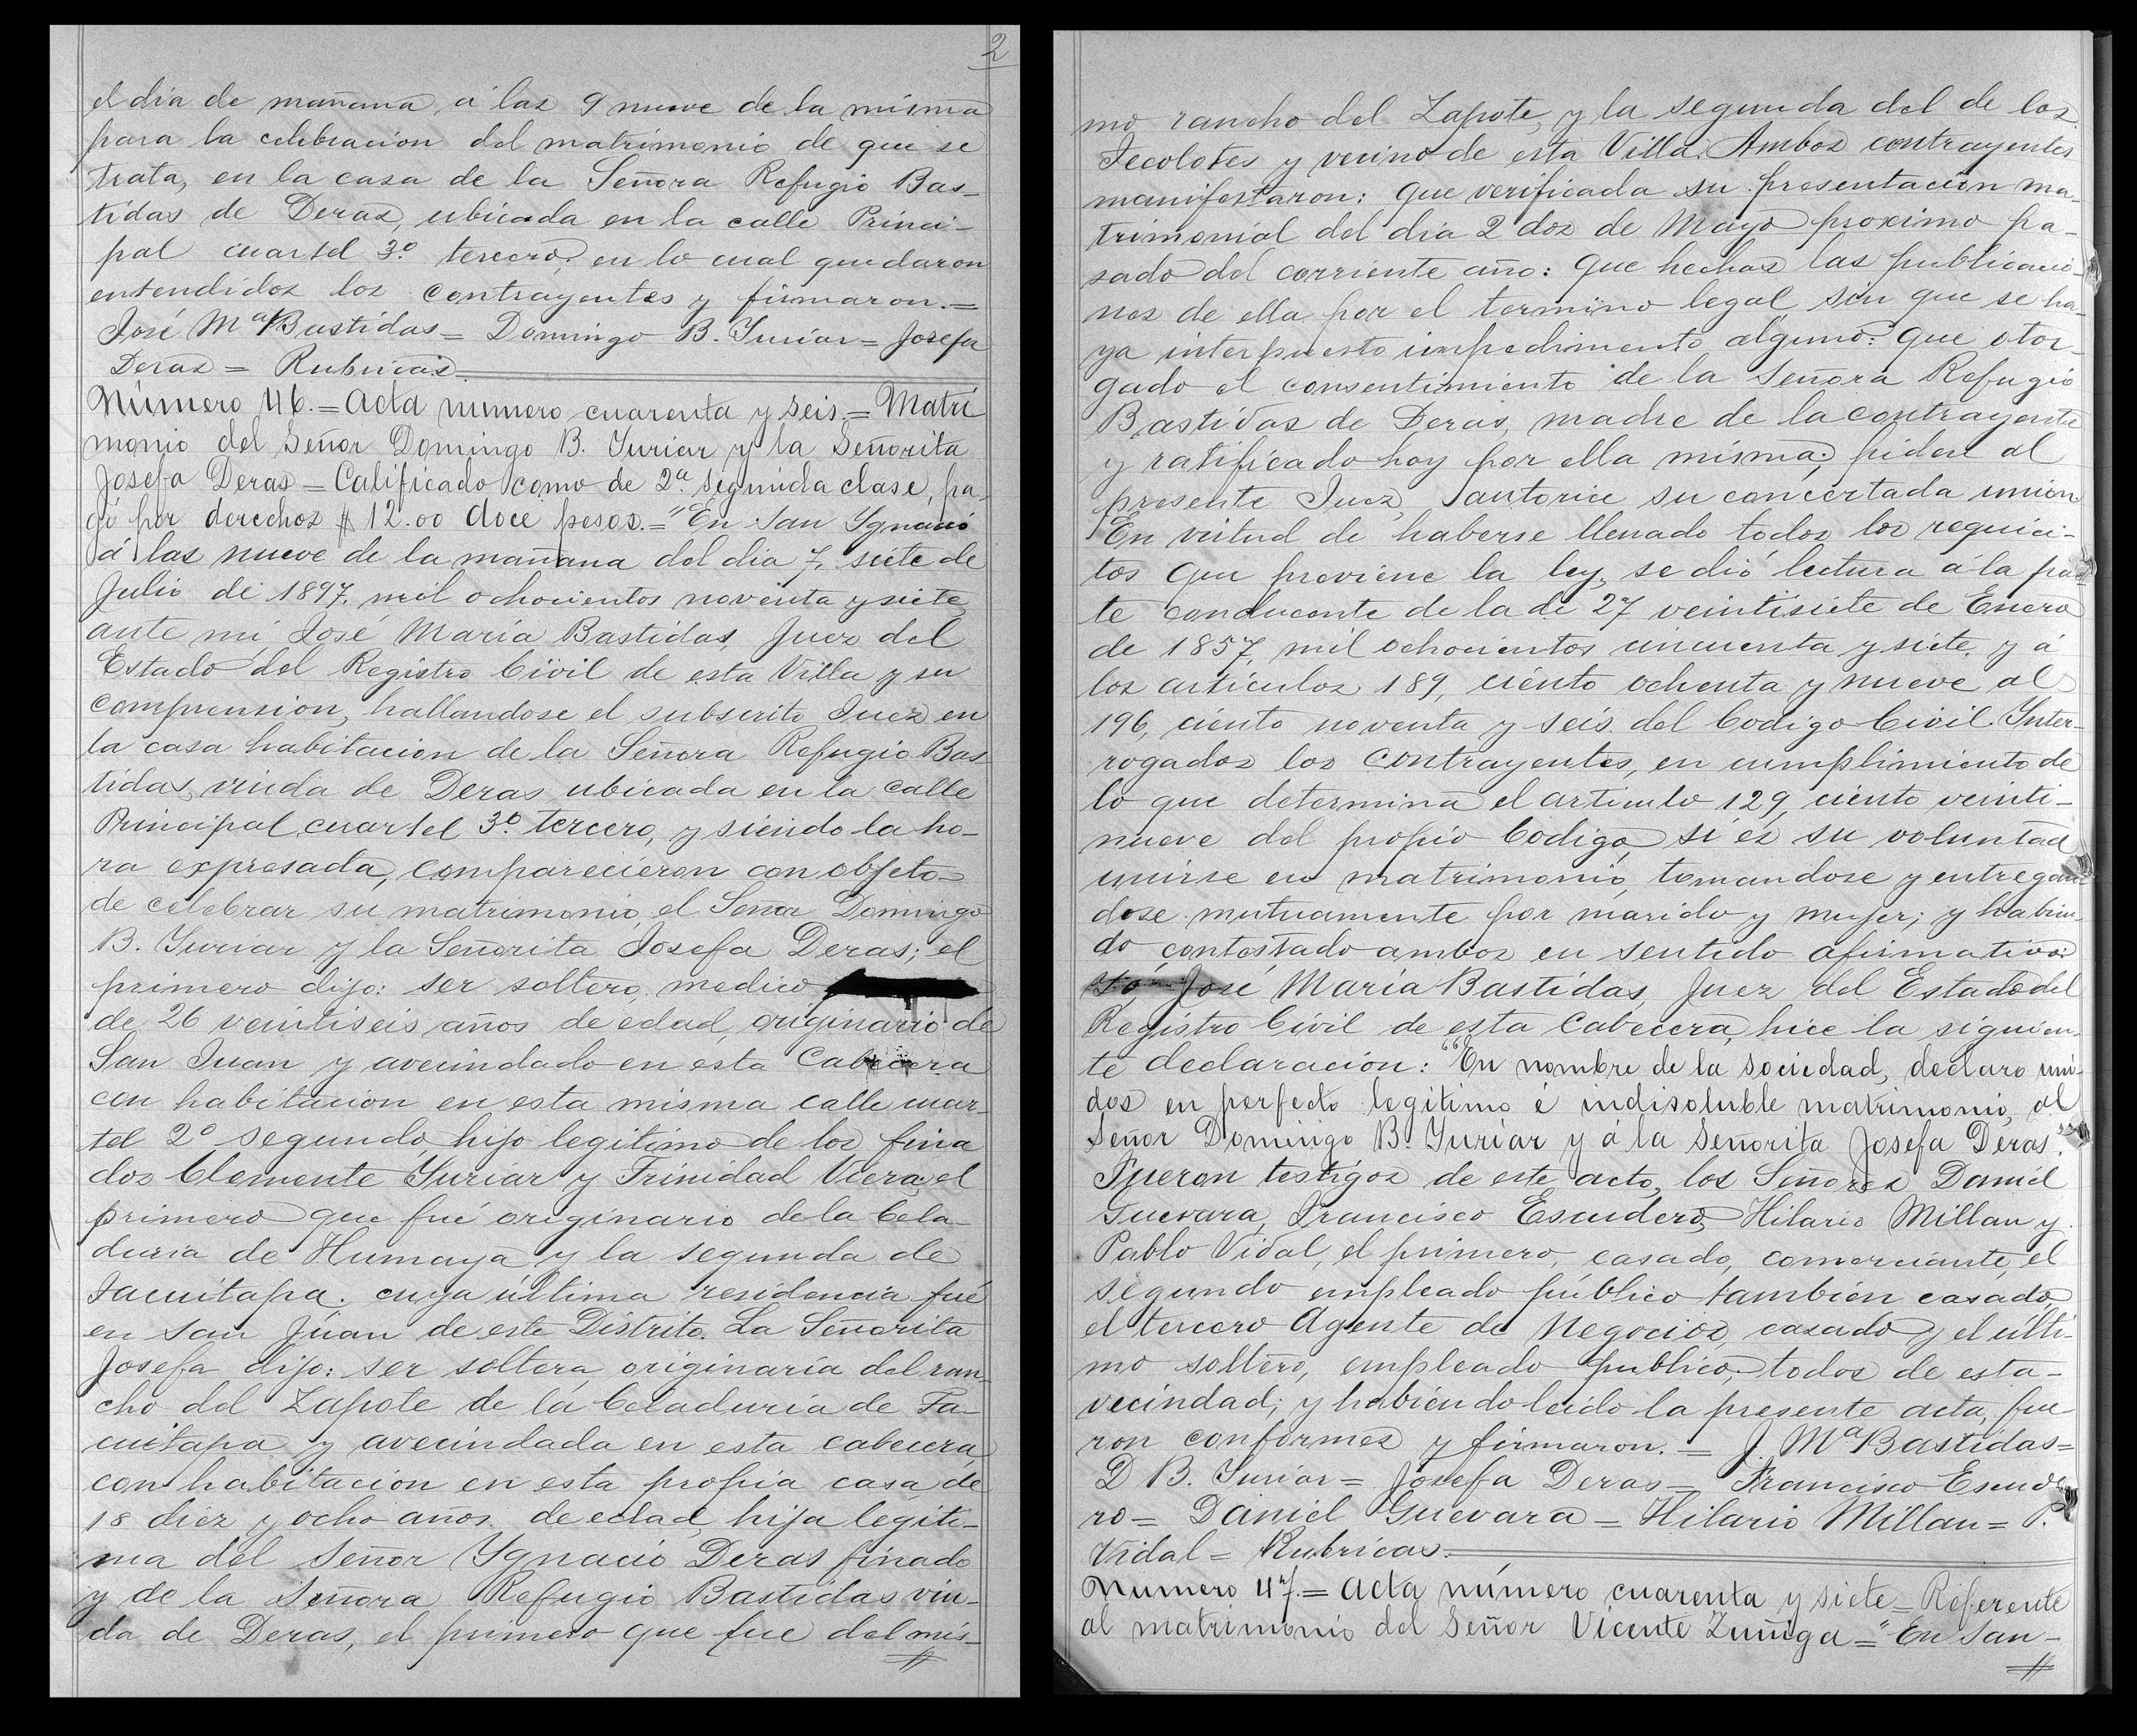 2
el dia de mañana, á las 9 nueve de la misma
para la celebracion del matrimonio de que se
trata, en la casa de la Señora Refugio Bas-
tidas de Deras, ubicada en la calle Princi-
pal cuartel 3º tercero; en lo cual quedaron
entendidos los contrayentes y firmaron.=
José Mª Bastidas= Domingo B. Yuriar= Josefa
Deras = Rubricas.
Número 46.= Acta numero cuarenta y seis.= Matri
monio del Señor Domingo B. Yuriar y la Señorita
Josefa Deras = Calificado como de 2ª segunda clase, pa-
gó por derechos $ 12.00 doce pesos.="En San Ygnacio
á las nueve de la mañana del dia 7, siete de
Julio de 1897, mil ochocientos noventa y siete,
ante mi José María Bastidas, Juez del
Estado del Registro Civil de esta Villa y su
comprension, hallandose el subscrito Juez en
la casa habitacion de la Señora Refugio Bas
tidas, viuda de Deras ubicada en la calle
Principal, cuartel 3º tercero, y siendo la ho-
ra expresada, comparecieron con objeto
de celebrar su matrimonio, el Señor Domingo
B. Yuriar y la Señorita Josefa Deras; el
primero dijo: ser soltero, medico
de 26 veintiseis años de edad, originario de
San Juan y avecindado en esta Cabecera
con habitacion en esta misma calle cuar-
tel 2º segundo, hijo legitimo de los fina
dos Clemente Yuriar y Trinidad Viera, el
primero que fué originario de la Cela-
duria de Humaya y la segunda de
Tacuitapa, cuya última residencia fué
en San Juan de este Distrito. La Señorita
Josefa dijo: ser soltera, originaria del ran-
cho del Zapote de la Celaduria de Ta-
cuitapa y avecindada en esta cabecera,
con habitacion en esta propia casa, de
18 diez y ocho años de edad, hija legiti-
ma del Señor Ygnacio Deras finado
y de la Señora Refugio Bastidas viu-
da de Deras, el primero que fue del mis-
mo rancho del Zapote, y la segunda del de los
Tecolotes y vecino de esta Villa. Ambos contrayentes
manifestaron: que verificada su presentacion ma-
trimonial del dia 2 dos de Mayo proximo pa-
sado del corriente año: que hechas las publicacio-
nes de ella por el termino legal sin que se ha-
ya interpuesto impedimento alguno: que otor-
gado el consentimiento de la Señora Refugio
Bastidas de Deras, madre de la contrayente
y ratificado hoy por ella misma; piden al
presente Juez, autorice su concertada union
En virtud de haberse llenado todos los requici-
tos que previene la ley, se dió lectura á la par
te conducente de la de 27 veintisiete de Enero
de 1857, mil ochocientos cincuenta y siete, y á
los articulos 189, ciento ochenta y nueve al
196, ciento noventa y seis del Codigo Civil. Ynter-
rogados los contrayentes, en cumplimiento de
lo que determina el articulo 129, ciento veinti-
nueve del propio Codigo, si es su voluntad
unirse en matrimonio, tomandose y entregan
dose mutuamente por marido y mujer; y habien-
do contestado ambos en sentido afirmativo:
Yo, José María Bastidas, Juez del Estado del
Registro Civil de esta Cabecera, hice la siguien-
te declaración: "En nombre de la sociedad, declaro uni-
dos en perfecto legítimo é indisoluble matrimonio, al
Señor Domingo B. Yuriar y á la Señorita Josefa Deras".
Fueron testigos de este acto, los Señores Daniel
Guevara, Francisco Escudero, Hilario Millan y
Pablo Vidal, el primero, casado, comerciante, el
segundo empleado público tambien casado,
el tercero Agente de Negocios, casado y el ulti-
mo soltero, empleado publico, todos de esta
vecindad; y habiendo leido la presente acta, fue
ron conformes y firmaron. = J. Mª Bastidas=
D B. Yuriar= Josefa Deras= Francisco Escude
ro= Daniel Guevara = Hilario Millan= P.
Vidal= Rubricas.
Numero 47.= Acta número cuarenta y siete= Referente
al matrimonio del Señor Vicente Zuñiga="En San-